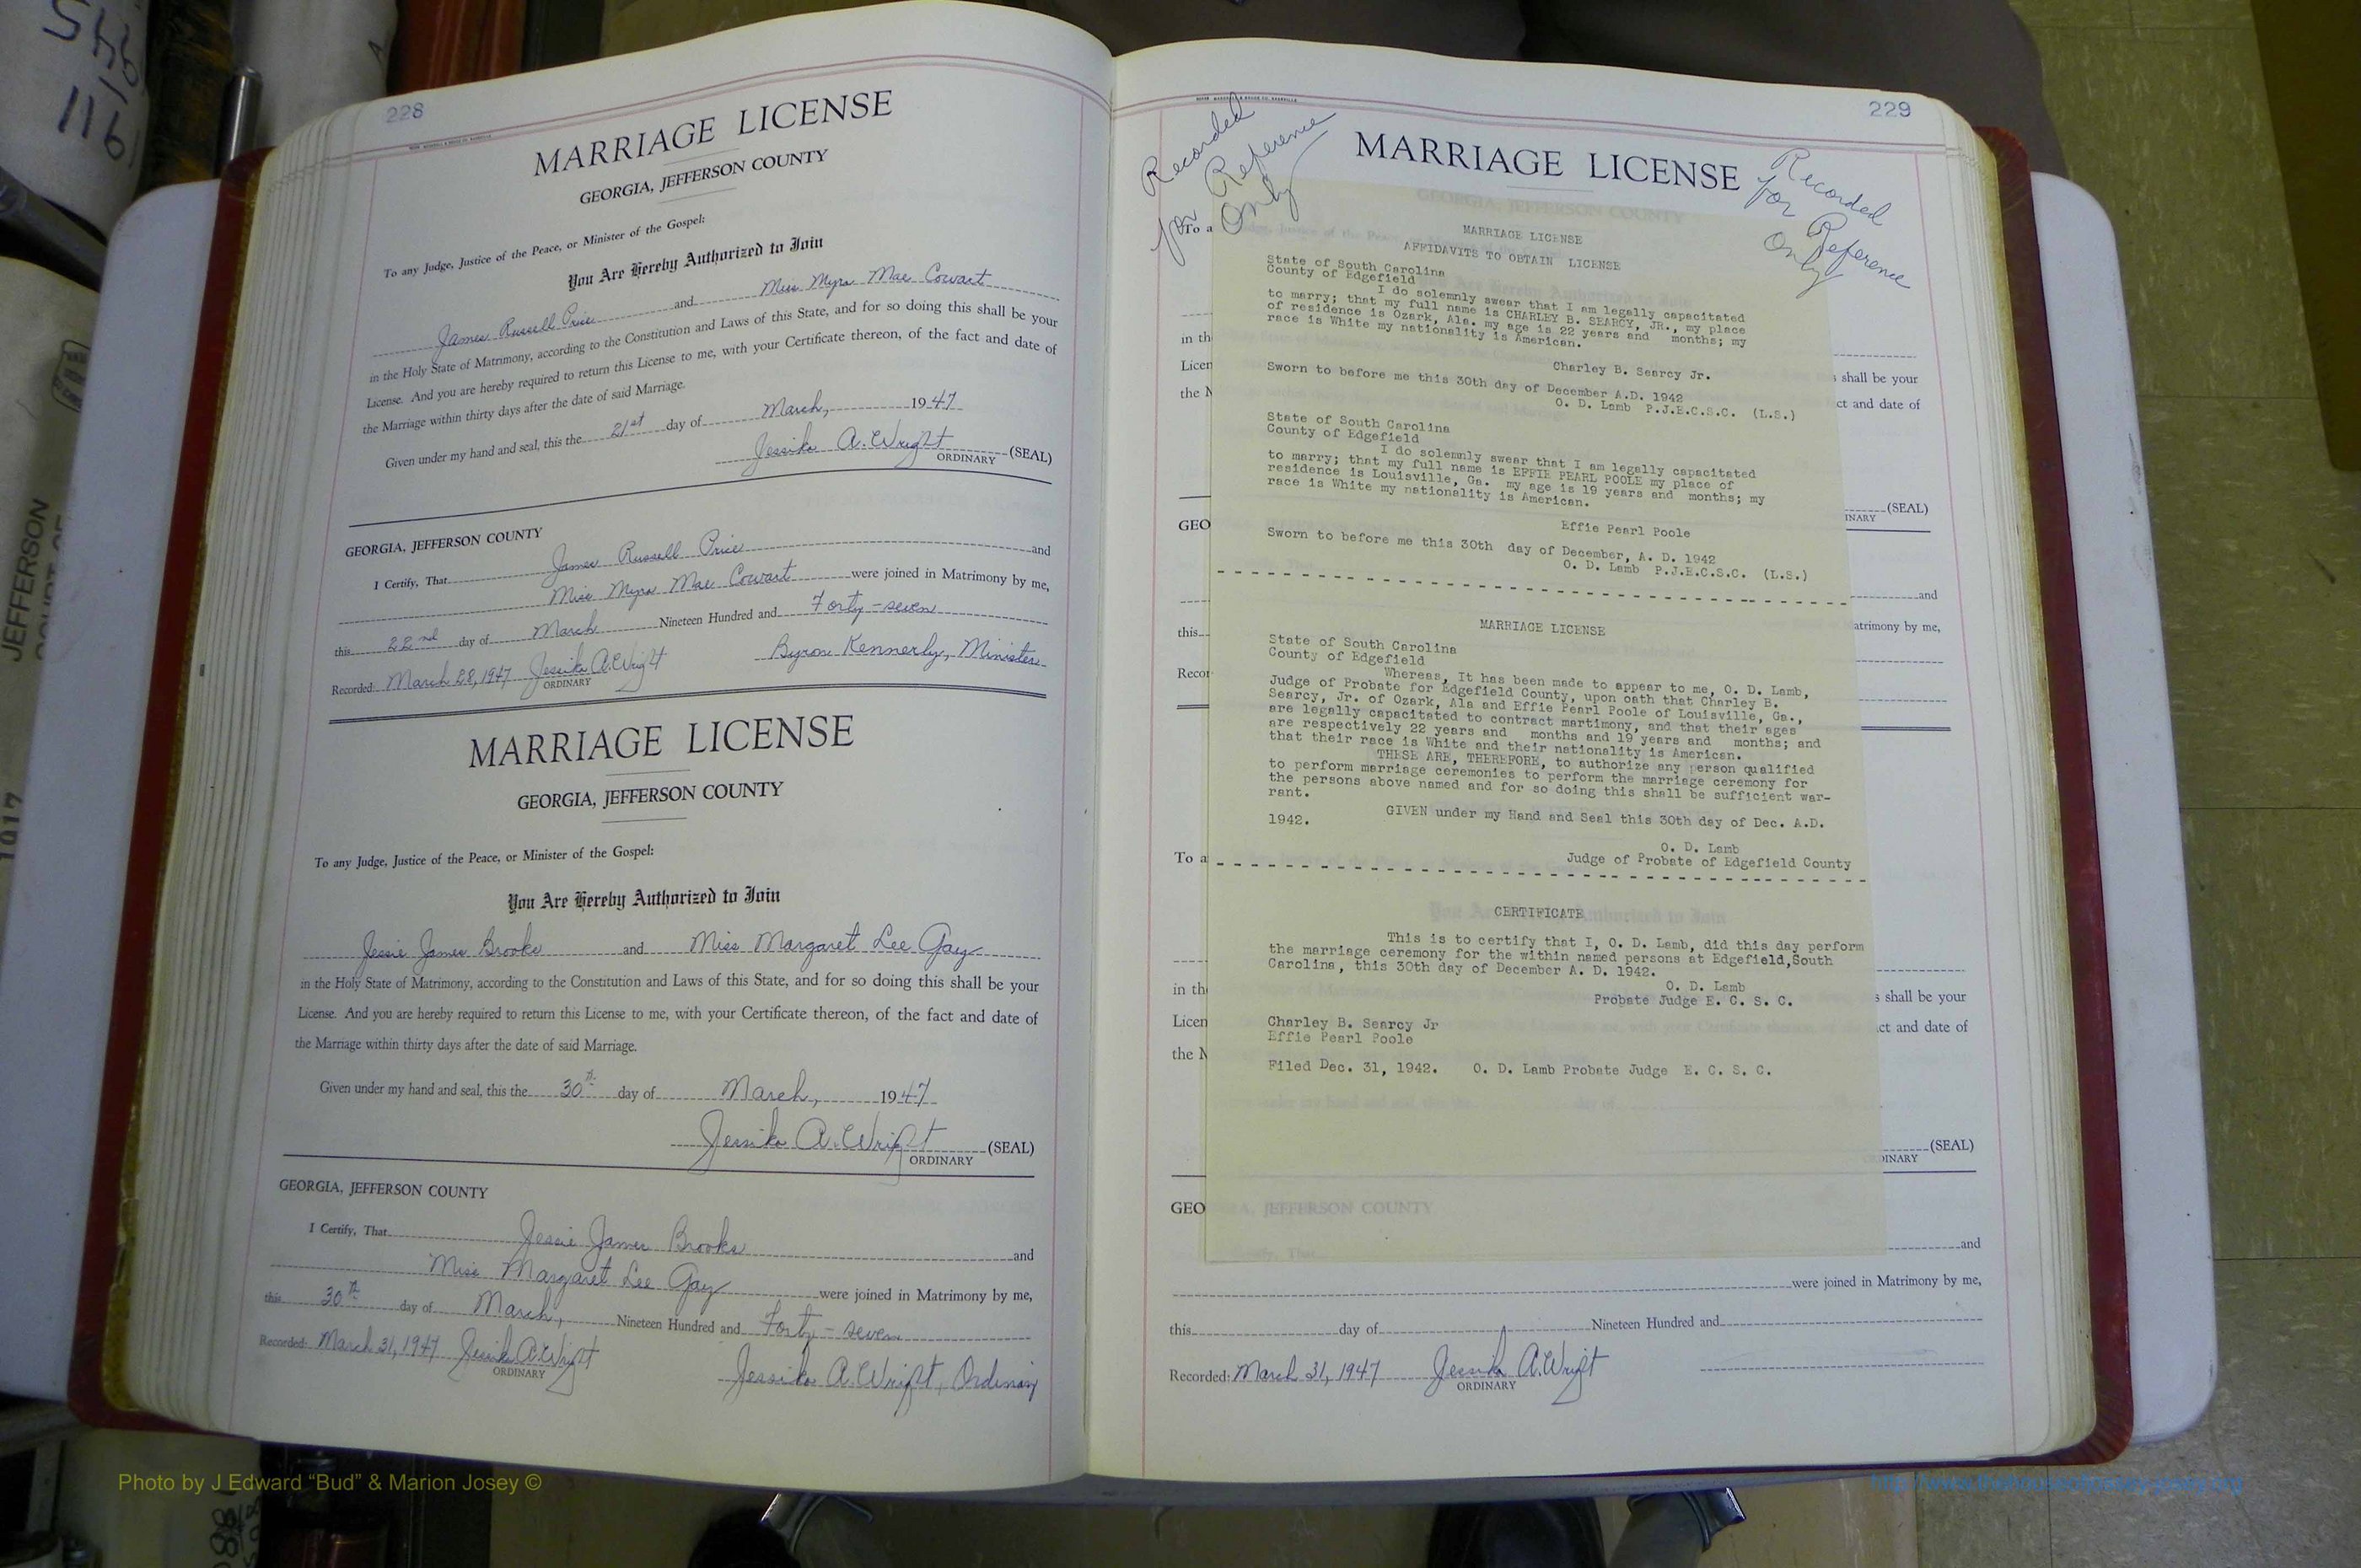 228
MARRIAGE LICENSE
GEORGIA, JEFFERSON COUNTY
To any Judge, Justice of the Peace, or Minister of the Gospel:
You Are Hereby Authorized to Join
James Russell Price and Miss Myra Mae Cowart
in the Holy State of Matrimony, according to the Constitution and Laws of this State, and for so doing this shall be your
License. And you are hereby required to return this License to me, with your Certificate thereon, of the fact and date of
the Marriage within thirty days after the date of said Marriage.
Given under my hand and seal, this the 21st day of March, 1947
Jessika A. Wright (SEAL)
ORDINARY
GEORGIA, JEFFERSON COUNTY
I Certify, That James Russell Price and
Miss Myra Mae Cowart were joined in Matrimony by me,
this 22nd day of March Nineteen Hundred and Forty-seven
Byron Kennerly, Minister
Recorded: March 28, 1947 Jessika A. Wright
ORDINARY
MARRIAGE LICENSE
GEORGIA, JEFFERSON COUNTY
To any Judge, Justice of the Peace, or Minister of the Gospel:
You Are Hereby Authorized to Join
Jessie James Brooks and Miss Margaret Lee Gay
in the Holy State of Matrimony, according to the Constitution and Laws of this State, and for so doing this shall be your
License. And you are hereby required to return this License to me, with your Certificate thereon, of the fact and date of
the Marriage within thirty days after the date of said Marriage.
Given under my hand and seal, this the 30th day of March, 1947
Jessika A. Wright (SEAL)
ORDINARY
GEORGIA, JEFFERSON COUNTY
I Certify, That Jessie James Brooks and
Miss Margaret Lee Gay were joined in Matrimony by me,
this 30th day of March, Nineteen Hundred and Forty-seven
Recorded: March 31, 1947 Jessika A. Wright
ORDINARY
Jessika A. Wright, Ordinary
229
Recorded
for Reference
Only
MARRIAGE LICENSE
Recorded
for Reference
Only
MARRIAGE LICENSE
AFFIDAVITS TO OBTAIN LICENSE
State of South Carolina
County of Edgefield
I do solemnly swear that I am legally capacitated
to marry; that my full name is CHARLEY B. SEARCY, JR., my place
of residence is Ozark, Ala. my age is 22 years and months; my
race is White my nationality is American.
Charley B. Searcy Jr.
Sworn to before me this 30th day of December A.D. 1942
O. D. Lamb P.J.E.C.S.C. (L.S.)
State of South Carolina
County of Edgefield
I do solemnly swear that I am legally capacitated
to marry; that my full name is EFFIE PEARL POOLE my place of
residence is Louisville, Ga. my age is 19 years and months; my
race is White my nationality is American.
Effie Pearl Poole
Sworn to before me this 30th day of December, A. D. 1942
O. D. Lamb P.J.E.C.S.C. (L.S.)
MARRIAGE LICENSE
State of South Carolina
County of Edgefield
Whereas, It has been made to appear to me, O. D. Lamb,
Judge of Probate for Edgefield County, upon oath that Charley B.
Searcy, Jr. of Ozark, Ala and Effie Pearl Poole of Louisville, Ga.,
are legally capacitated to contract martimony, and that their ages
are respectively 22 years and months and 19 years and months; and
that their race is White and their nationality is American.
THESE ARE, THEREFORE, to authorize any person qualified
to perform marriage ceremonies to perform the marriage ceremony for
the persons above named and for so doing this shall be sufficient war-
rant.
GIVEN under my Hand and Seal this 30th day of Dec. A.D.
1942.
O. D. Lamb
Judge of Probate of Edgefield County
CERTIFICATE
This is to certify that I, O. D. Lamb, did this day perform
the marriage ceremony for the within named persons at Edgefield,South
Carolina, this 30th day of December A. D. 1942.
O. D. Lamb
Probate Judge E. C. S. C.
Charley B. Searcy Jr
Effie Pearl Poole
Filed Dec. 31, 1942. O. D. Lamb Probate Judge E. C. S. C.
(SEAL)
GEORGIA, JEFFERSON COUNTY
and
were joined in Matrimony by me,
this day of Nineteen Hundred and
Recorded: March 31, 1947 Jessika A. Wright
ORDINARY
Photo by J Edward “Bud” & Marion Josey ©
JEFFERSON
1017